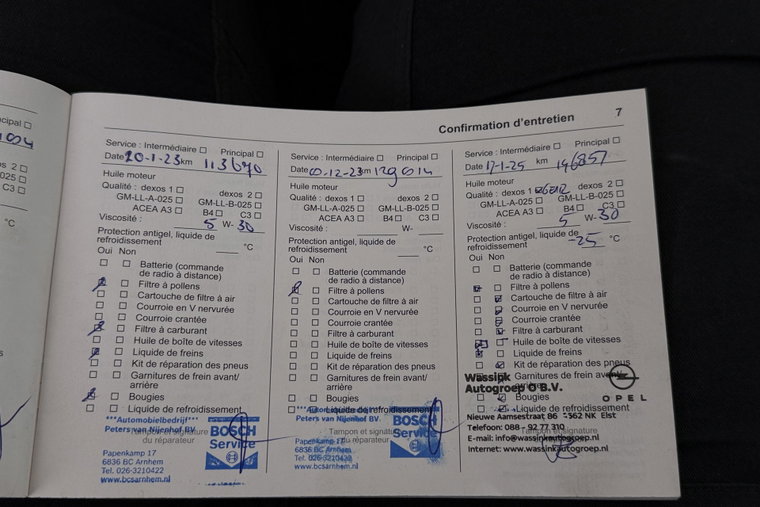 Confirmation d'entretien 7
Service : Intermédiaire ☐ Principal ☐
Date 20-1-23 km 113670
Huile moteur
Qualité : dexos 1 ☐ dexos 2 ☐
GM-LL-A-025 ☐ GM-LL-B-025 ☐
ACEA A3 ☐ B4 ☐ C3 ☐
Viscosité : 5 W- 30
Protection antigel, liquide de
refroidissement °C
Oui Non
Batterie (commande
de radio à distance)
Filtre à pollens
Cartouche de filtre à air
Courroie en V nervurée
Courroie crantée
Filtre à carburant
Huile de boîte de vitesses
Liquide de freins
Kit de réparation des pneus
Garnitures de frein avant/
arrière
Bougies
Liquide de refroidissement
***Automobielbedrijf***
Peters van Nijenhof BV.
du réparateur
Papenkamp 17
6836 BC Arnhem
Tel. 026-3210422
www.bcsarnhem.nl
BOSCH
Service
Service : Intermédiaire ☐ Principal ☐
Date -12-23 km 129014
Huile moteur
Qualité : dexos 1 ☐ dexos 2 ☐
GM-LL-A-025 ☐ GM-LL-B-025 ☐
ACEA A3 ☐ B4 ☐ C3 ☐
Viscosité : W-
Protection antigel, liquide de
refroidissement °C
Oui Non
Batterie (commande
de radio à distance)
Filtre à pollens
Cartouche de filtre à air
Courroie en V nervurée
Courroie crantée
Filtre à carburant
Huile de boîte de vitesses
Liquide de freins
Kit de réparation des pneus
Garnitures de frein avant/
arrière
Bougies
Liquide de refroidissement
Peters van Nijenhof BV.
Tampon et signature
du réparateur
Papenkamp 17
6836 BC Arnhem
Tel. 026-3210422
www.bcsarnhem.nl
BOSCH
Service
Service : Intermédiaire ☐ Principal ☐
Date 17-1-25 km 146857
Huile moteur
Qualité : dexos 1 dexos 2 ☐
GM-LL-A-025 ☐ GM-LL-B-025 ☐
ACEA A3 ☐ B4 ☐ C3 ☐
Viscosité : 5 W- 30
Protection antigel, liquide de
refroidissement -25 °C
Oui Non
Batterie (commande
de radio à distance)
Filtre à pollens
Cartouche de filtre à air
Courroie en V nervurée
Courroie crantée
Filtre à carburant
Huile de boîte de vitesses
Liquide de freins
Kit de réparation des pneus
Garnitures de frein avant/
Bougies
Liquide de refroidissement
Wassink
Autogroep O B.V.
OPEL
Nieuwe Aamsestraat 86 - 6562 NK Elst
Tampon et signature
Telefoon: 088 - 92 77 310
E-mail: info@wassinkautogroep.nl
Internet: www.wassinkautogroep.nl